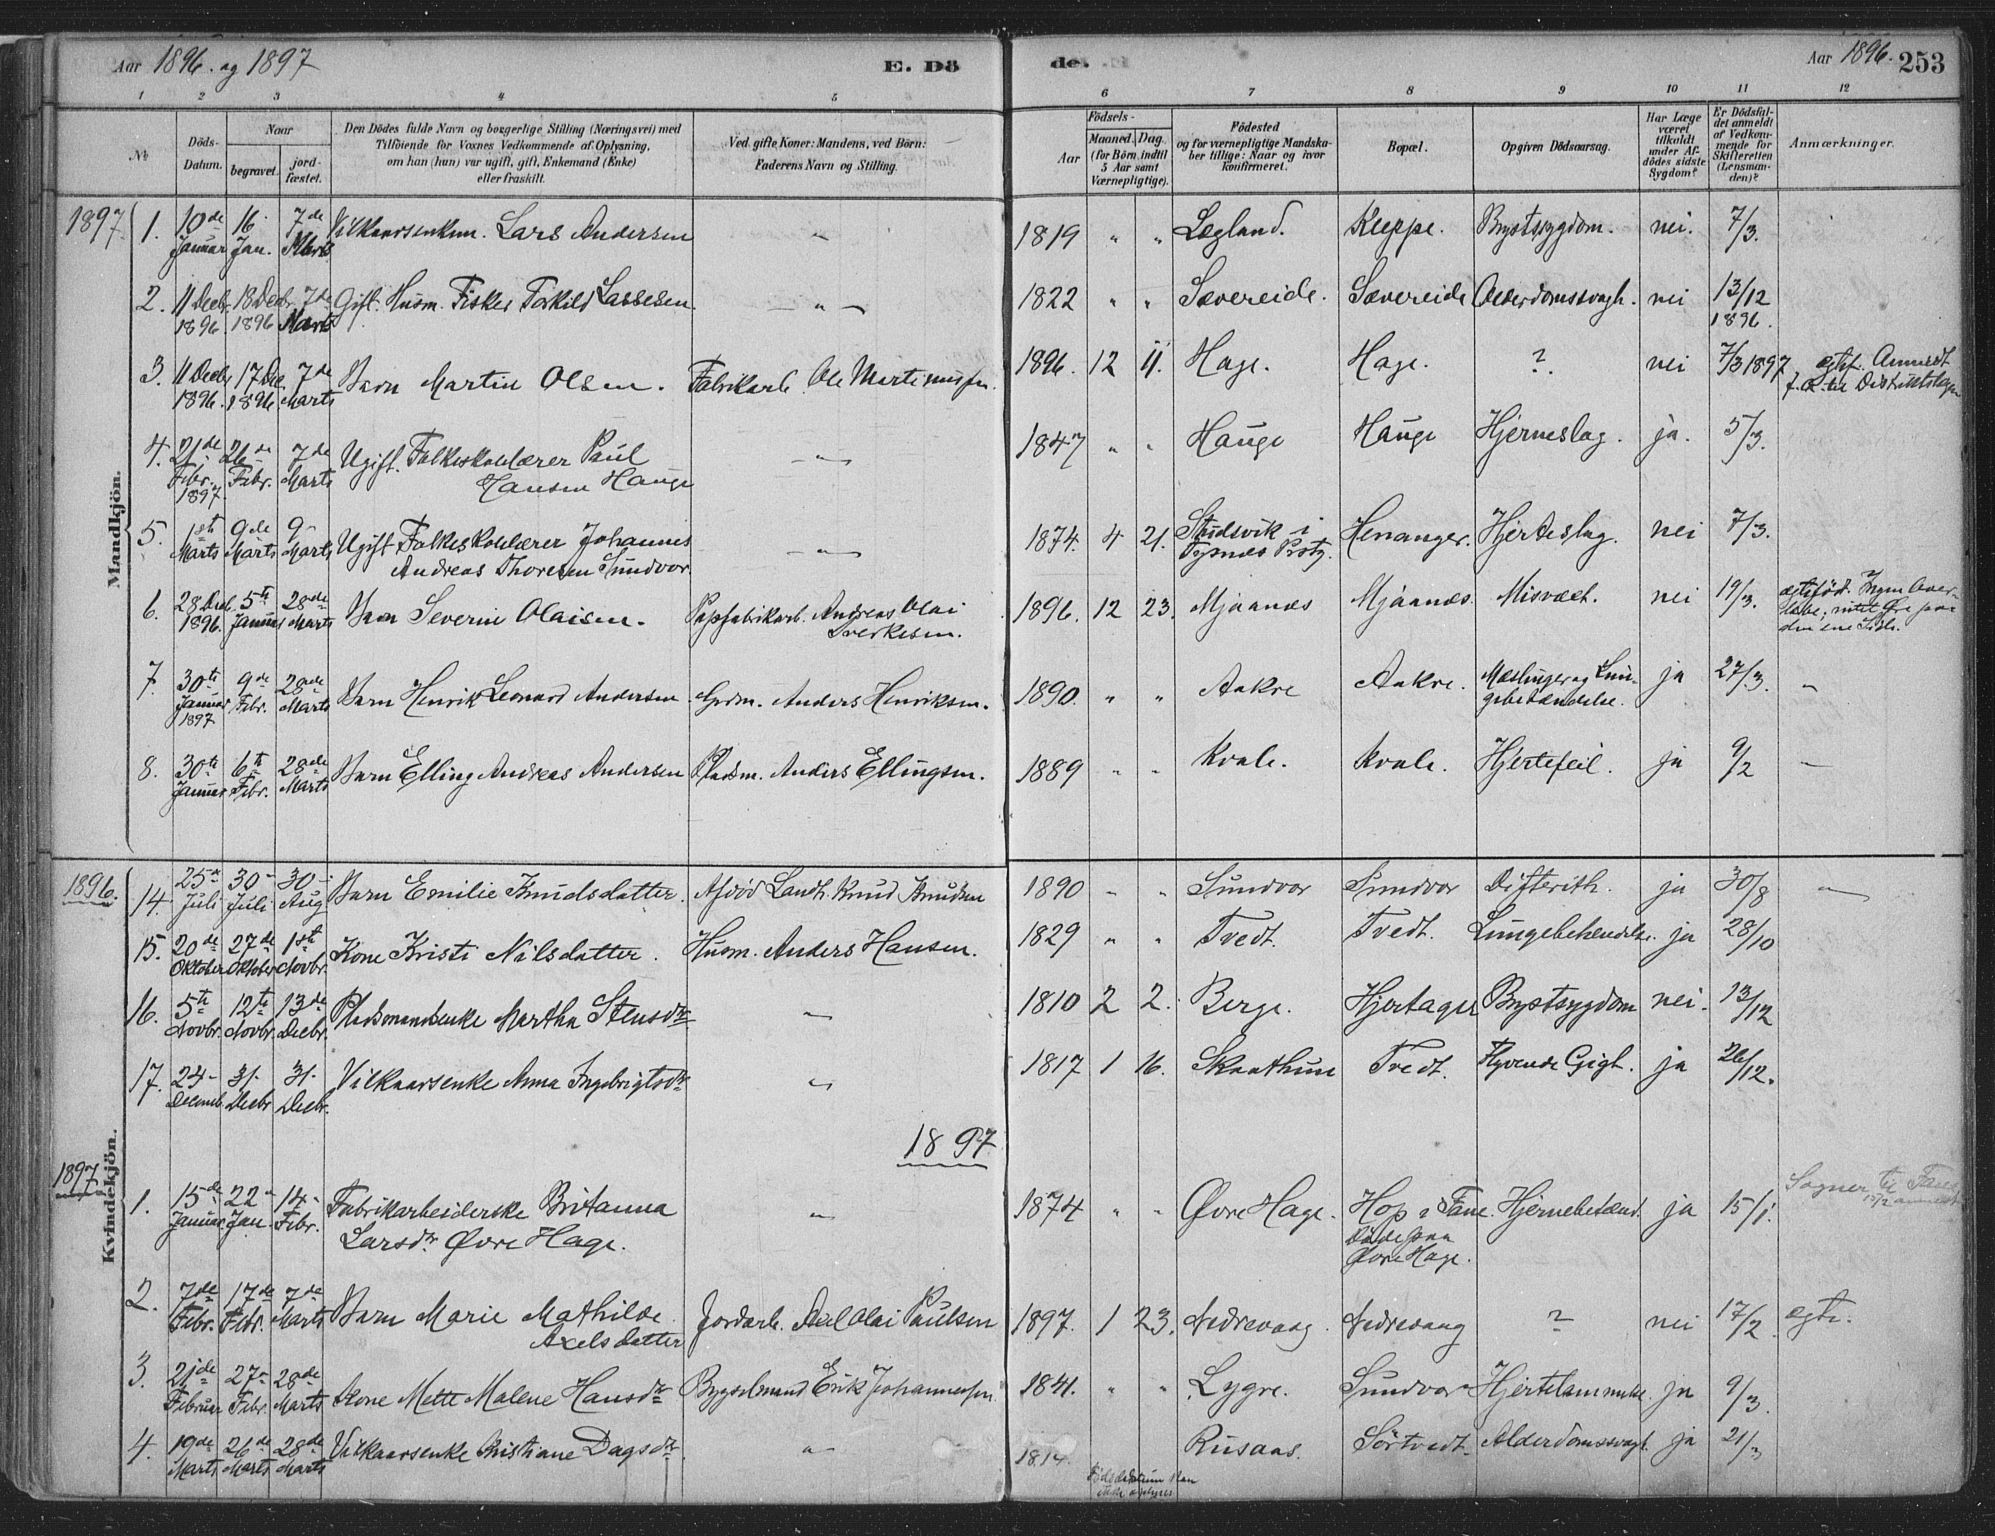 Aar 1896. og 1897
E. Dö
de.
Aar 1896. 253
1 2 3 4 5 6 7 8 9 10 11 12
No
Döds-
Datum.
Naar
begravet.
jord-
fæstet.
Den Dödes fulde Navn og borgerlige Stilling (Næringsvei) med
Tilföiende for Voxnes Vedkommende af Oplysning,
om han (hun) var ugift, gift, Enkemand (Enke)
eller fraskilt.
Ved gifte Koner: Mandens, ved Börn:
Faderens Navn og Stilling.
Födsels-
Aar
Maaned. Dag.
(for Börn indtil
5 Aar samt
Værnepligtige).
Födested
og for værnepligtige Mandska-
ber tillige: Naar og hvor
konfirmeret.
Bopæl.
Opgiven Dödsaarsag.
Har Læge
været
tilkaldt
under Af-
dödes sidste
Sygdom?
Er Dödsfal-
det anmeldt
af Vedkom-
mende for
Skifteretten
(Lensman-
den)?
Anmærkninger.
Mandkjön.
1897. 1. 10de Januar 16. Jan. 7de Marts Vilkaarsenkem. Lars Andersen " 1819 " " Legland. Kleppe. Brystsygdom. nei. 7/3.
2. 11 Decbr 1896 18 Decbr 1896 7de Marts Gift. Husm. Fisker Torkild Lassesen " 1822 " " Sævereide. Sævereide Alderdomssvagh. nei 13/12 1896.
3. 11 Decbr 1896. 17 Dec. 1896 7de Marts Barn Martin Olsen. Fabrikarb. Ole Martinussen. 1896. 12 11. Hage. Hage. ? nei 7/3 1897 egtef. Anmeldt
til Distriktslægen
4. 21de Febr. 1897 26de Febr. 7de Marts Ugift. Folkeskolelærer Paul
Hansen Hauge " 1847 " " Hauge Hauge Hjerneslag. ja. 5/3.
5. 1ste Marts 9de Marts 9- Marts Ugift Folkeskolelærer Johannes
Andreas Thoresen Sundvor. " 1874. 4 21. Studsvik i
Tysnes Prstg. Henanger. Hjerteslag. nei 7/3.
6. 28 Decb. 1896. 5te Januar 28de Marts Barn Severin Olaisen. Papfabrikarb. Andreas Olai
Sverkesen. 1896. 12 23. Mjaanæs Mjaanæs. Misvæxt. nei 19/3. egtefød. Ingen Over-
læbe, intet Øre paa
den ene Side.
7. 30te Januar 1897 9de Febr. 28de Marts Barn Henrik Leonard Andersen Grdm. Anders Henriksen. 1890. " " Aakre Aakre. Mæslinger og Lun-
gebetændelse. ja 27/3. "
8. 30te Januar 6te Febr. 28de Marts Barn Elling Andreas Andersen Pladsm. Anders Ellingsen. 1889 " " Kvale. Kvale. Hjertefeil. ja 9/2 "
Kvindekjön.
1896. 14. 25de Juli 30- Juli 30- Aug Barn Emilie Knudsdatter. Afdød Landh. Knud Knudsen 1890 " " Sundvor Sundvor Difterith. ja 30/8 "
15. 20de Oktober 27de Oktober 1ste Novbr. Kone Kristi Nilsdatter. Husm. Anders Hansen. 1829 " " Tvedt. Tvedt. Lungebetændelse. ja 28/10
16. 5te Novbr. 12te Novbr. 13de Decbr. Pladsmandsenke Martha Stensdtr " 1810 2 2. Berge. Hjertager Brystsygdom nei. 13/12
17. 24- Decemb. 31. Decbr. 31. Decbr. Vilkaarsenke Anna Ingebrigtsdtr " 1817 1 16. Skaathun Tvedt. Flyvende Gigt. ja 26/12.
1897
1897 1. 15de Januar 22- Jan. 14- Febr. Fabrikarbeiderske Britanna
Larsdtr Øvre Hage. " 1874 " " Øvre Hage. Hop i Fane.
Døde paa
Øvre Hage. Hjernebetænd. ja 15/1. Sogner til Fane
2. 7de Febr. 17de Febr. 7de Marts Barn Marie Mathilde
Axelsdatter Jordarb. Axel Olai Paulsen 1897. 1 23. Nedrevaag. Nedrevaag ? nei 17/2. egte.
3. 21de Februar 27- Febr. 28de Marts Kone Mette Malene Hansdtr Bygselmand Erik Johannessen. 1841. " " Lygre. Sundvor Hjertelammelse. ja 9/3.
4. 19de Marts 26de Marts 28de Marts Vilkaarsenke Kristiane Dagsdtr. " 1814.
Fødedatum kan
ikke oplyses Rusaas. Sörtvedt. Alderdomssvagh. ja 21/3